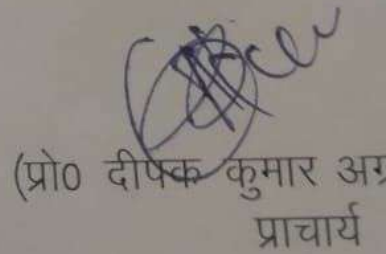 (प्रो0 दीपक कुमार अग्र
प्राचार्य